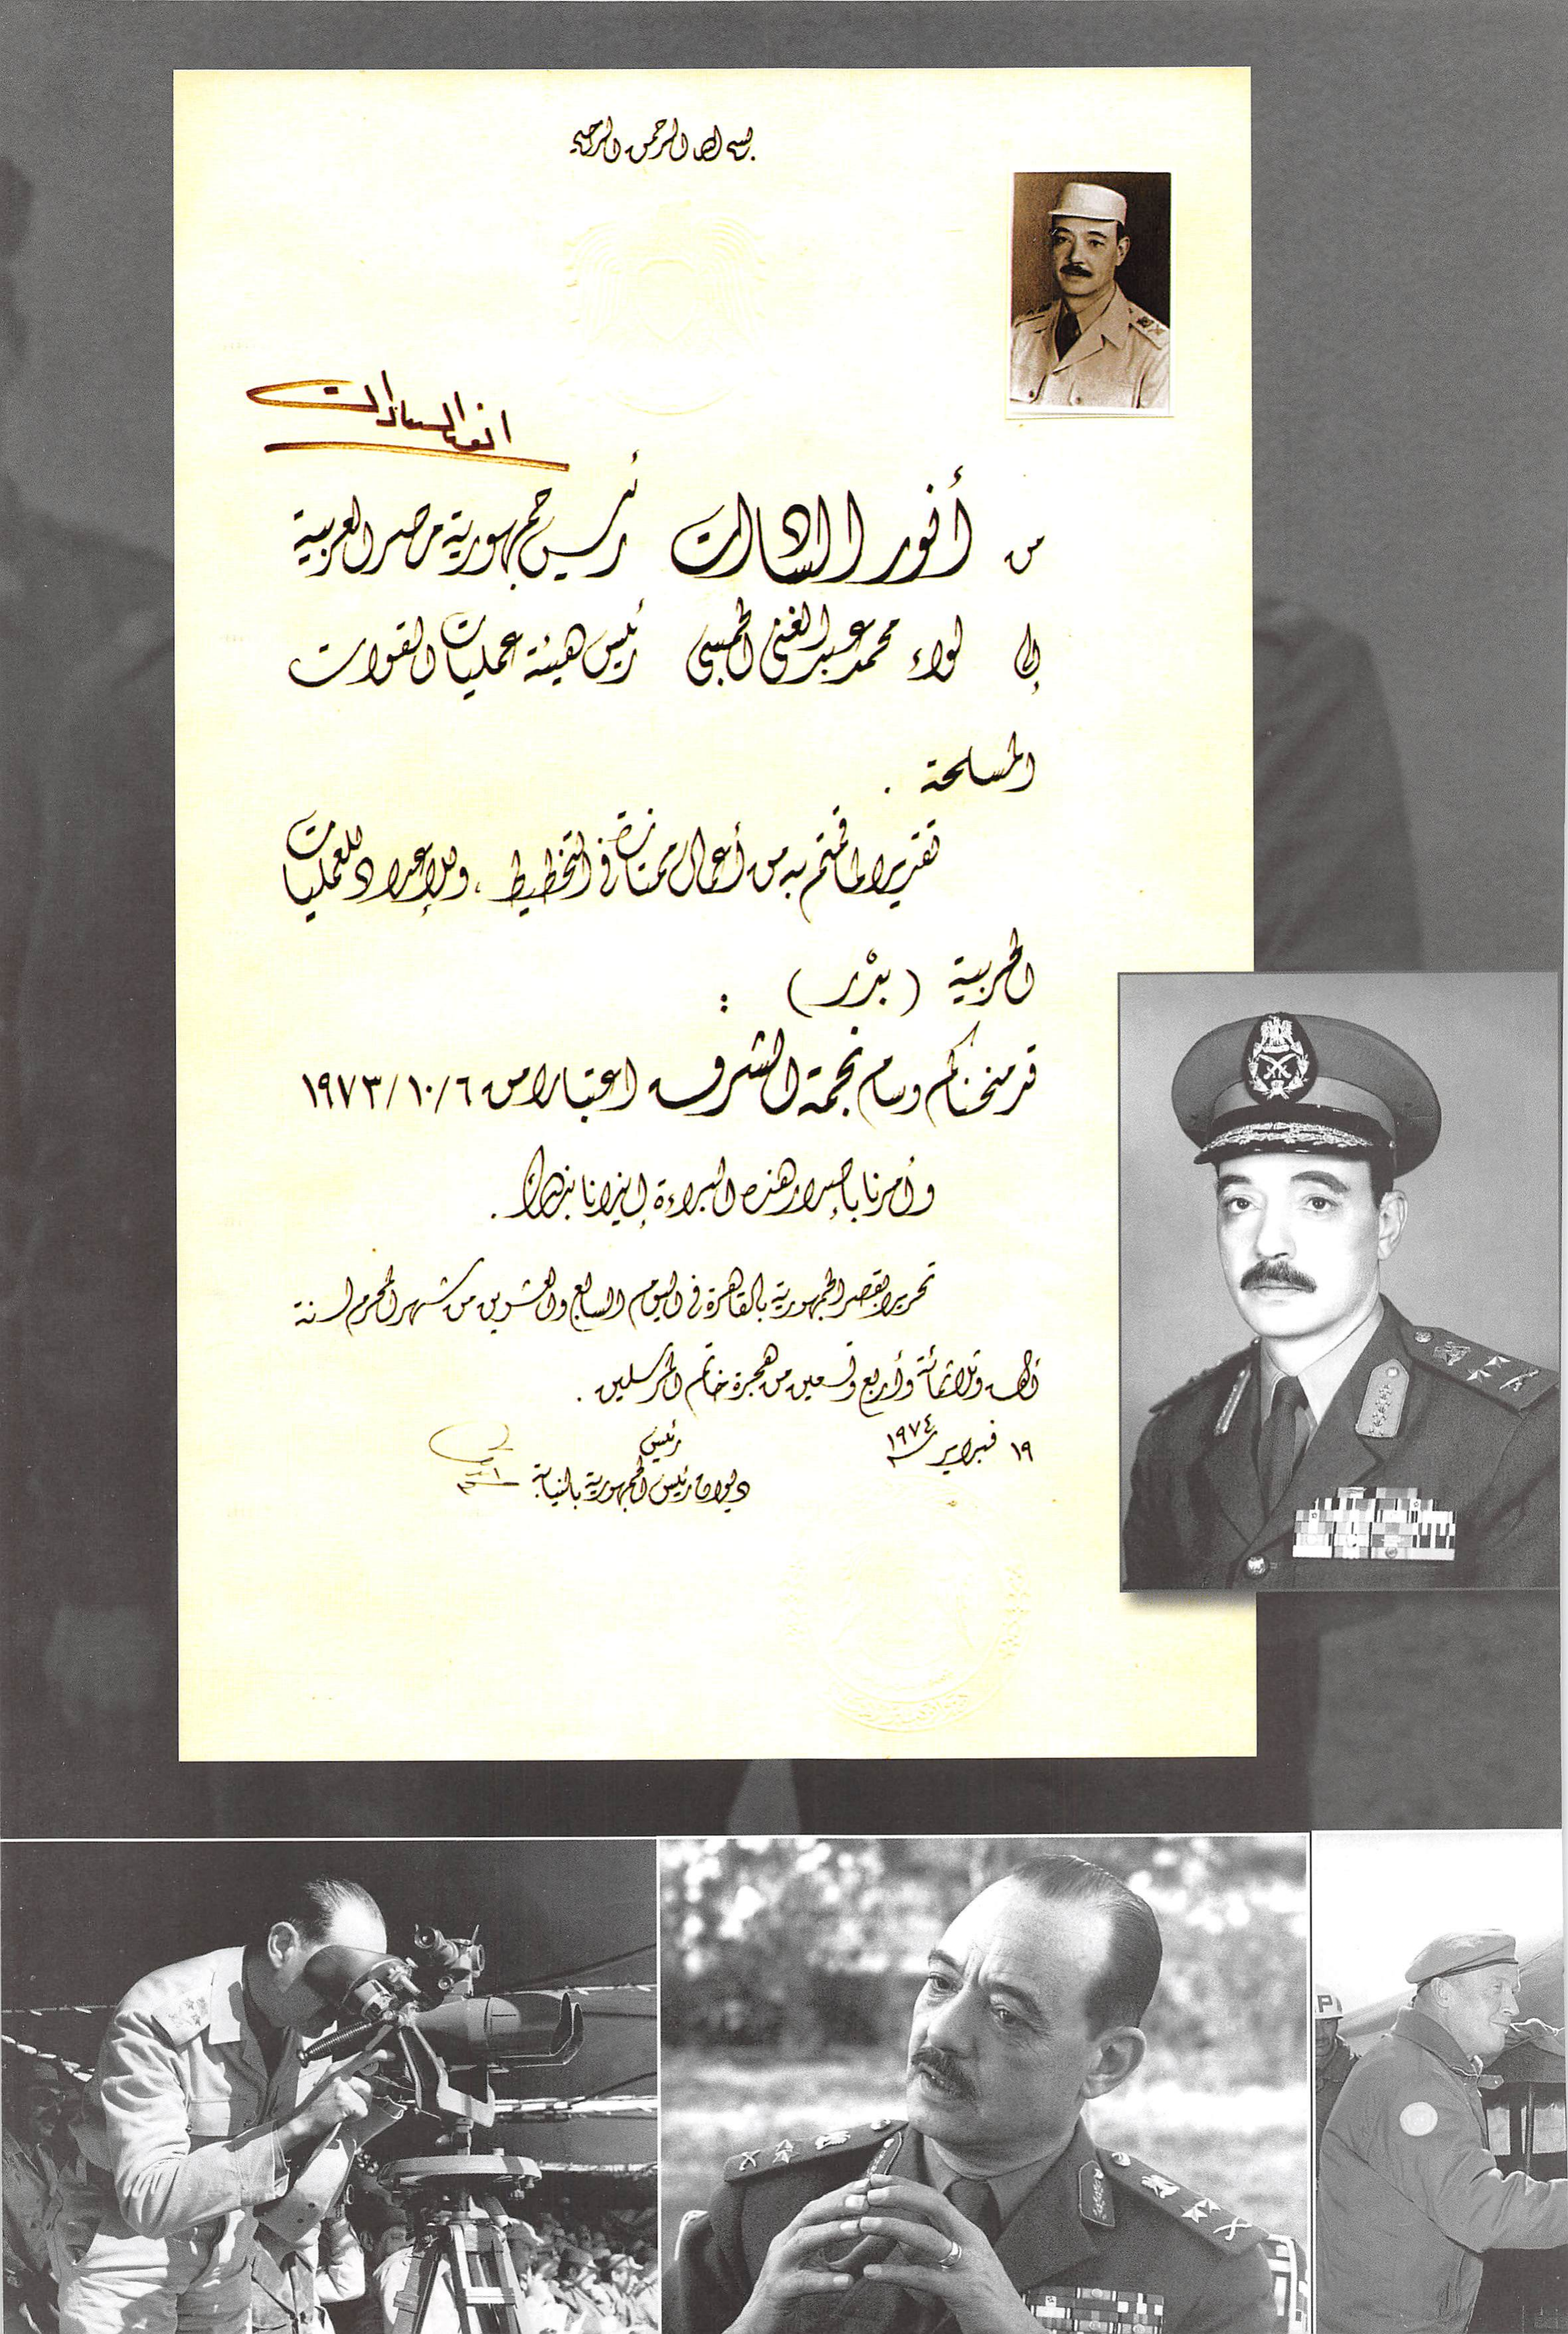 بسم الله الرحمن الرحيم
أنور السادات
من أنور السادات رئيس جمهورية مصر العربية
إلى لواء محمد عبد الغني الجمسي رئيس هيئة عمليات القوات
المسلحة .
تقديرا لما قمتم به من أعمال ممتازة في التخطيط ، والإعداد للعمليات
الحربية ( بدْر ) :
قد منحناكم وسام نجمة الشرف اعتبارا من ٦/١٠/١٩٧٣
وأمرنا بإصدار هذه البراءة إيذانا بذلك .
تحريرا بقصر الجمهورية بالقاهرة في اليوم السابع والعشرين من شهر المحرم لسنة
ألف وثلاثمائة وأربع وتسعين من هجرة خاتم المرسلين .
١٩ فبراير سنة ١٩٧٤
رئيس
ديوان رئيس الجمهورية بالنيابة
P